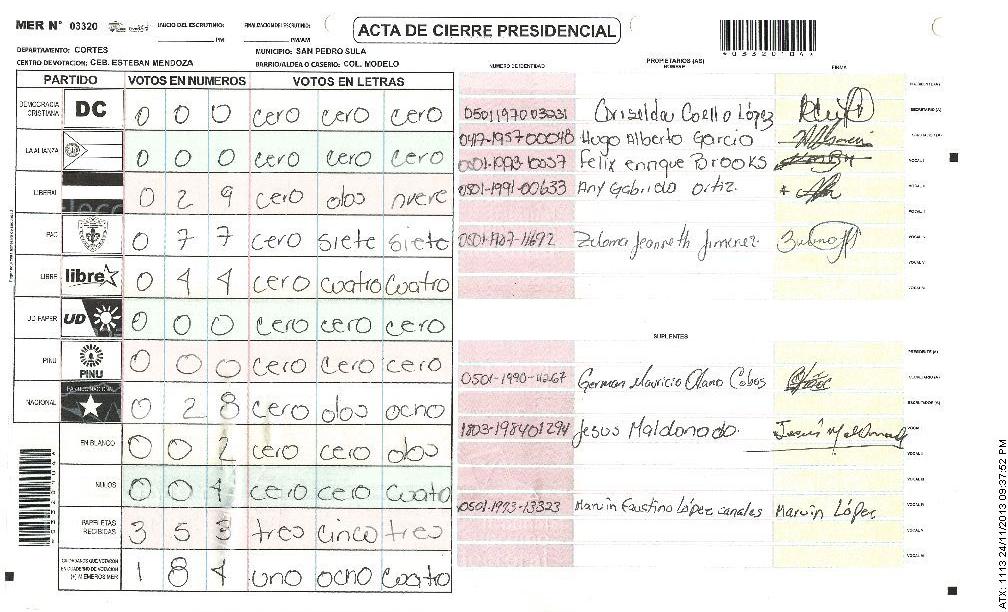 MER N° 03320 INICIO DEL ESCRUTINIO: ________ PM FINALIZACION DEL ESCRUTINIO: ________ PM/AM
ACTA DE CIERRE PRESIDENCIAL
DEPARTAMENTO: CORTES MUNICIPIO: SAN PEDRO SULA
CENTRO DE VOTACION: CEB. ESTEBAN MENDOZA BARRIO/ALDEA O CASERIO: COL. MODELO
PARTIDO VOTOS EN NUMEROS VOTOS EN LETRAS
DEMOCRACIA CRISTIANA DC 0 0 0 cero cero cero
LA ALIANZA 0 0 0 cero cero cero
LIBERAL 0 2 9 cero dos nueve
PAC 0 7 7 cero siete siete
LIBRE libre 0 4 4 cero cuatro cuatro
UD FAPER UD 0 0 0 cero cero cero
PINU PINU 0 0 0 cero cero cero
NACIONAL 0 2 8 cero dos ocho
EN BLANCO 0 0 2 cero cero dos
NULOS 0 0 4 cero cero cuatro
PAPELETAS RECIBIDAS 3 5 3 tres cinco tres
CIUDADANOS QUE VOTARON EN CUADERNO DE VOTACION (+) MIEMBROS MER 1 8 4 uno ocho cuatro
NUMERO DE IDENTIDAD PROPIETARIOS (AS) NOMBRE FIRMA
PRESIDENTE (A)
Griselda Coello López SECRETARIO (A)
Hugo Alberto Garcia
Felix enrique Brooks VOCAL I
0501-1991-00633 Any Gabriela ortiz. VOCAL II
Jeanneth Jimenez.
SUPLENTES
PRESIDENTE (A)
0501-1990-4267 German Mauricio Cobos SECRETARIO (A)
ESCRUTADOR (A)
1803-198401294 Jesus Maldonado. Jesús Maldonado
0501-1973-13323 Marvin Faustino López canales Marvin López
ATX: 1113 24/11/2013 09:37:52 PM